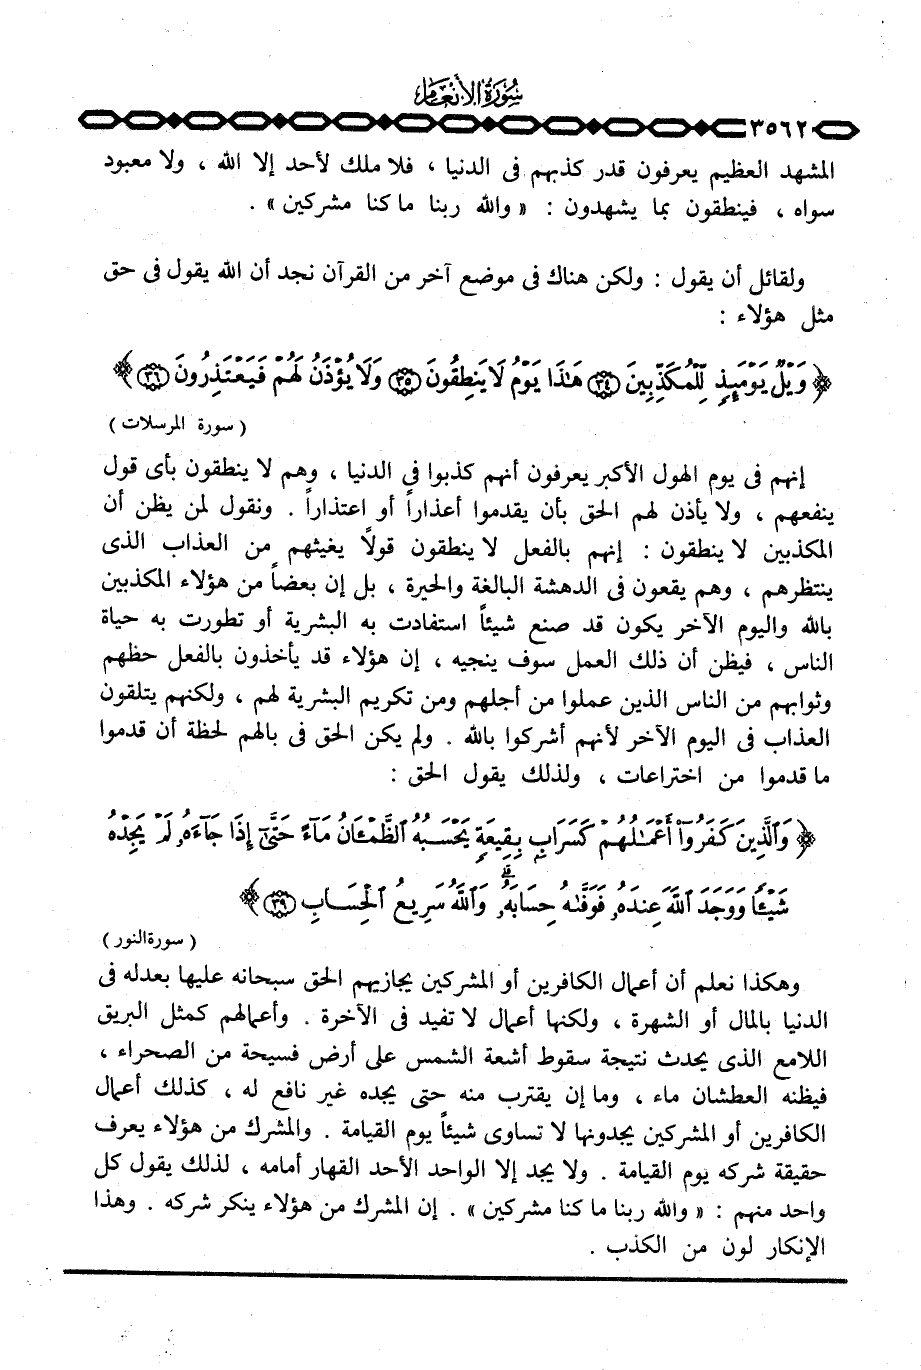 سورة الأنعام
٣٥٦٢
المشهد العظيم يعرفون قدر كذبهم فى الدنيا ، فلا ملك لأحد إلا الله ، ولا معبود
سواه ، فينطقون بما يشهدون : « والله ربنا ما كنا مشركين » .
ولقائل أن يقول : ولكن هناك فى موضع آخر من القرآن نجد أن الله يقول فى حق
مثل هؤلاء :
﴿ وَيْلٌ يَوْمَئِذٍ لِّلْمُكَذِّبِينَ ﴿٣٤﴾ هَٰذَا يَوْمُ لَا يَنطِقُونَ ﴿٣٥﴾ وَلَا يُؤْذَنُ لَهُمْ فَيَعْتَذِرُونَ ﴿٣٦﴾ ﴾
( سورة المرسلات )
إنهم فى يوم الهول الأكبر يعرفون أنهم كذبوا فى الدنيا ، وهم لا ينطقون بأى قول
ينفعهم ، ولا يأذن لهم الحق بأن يقدموا أعذاراً أو اعتذاراً . ونقول لمن يظن أن
المكذبين لا ينطقون : إنهم بالفعل لا ينطقون قولًا يغيثهم من العذاب الذى
ينتظرهم ، وهم يقعون فى الدهشة البالغة والحيرة ، بل إن بعضاً من هؤلاء المكذبين
بالله واليوم الآخر يكون قد صنع شيئاً استفادت به البشرية أو تطورت به حياة
الناس ، فيظن أن ذلك العمل سوف ينجيه ، إن هؤلاء قد يأخذون بالفعل حظهم
وثوابهم من الناس الذين عملوا من أجلهم ومن تكريم البشرية لهم ، ولكنهم يتلقون
العذاب فى اليوم الآخر لأنهم أشركوا بالله . ولم يكن الحق فى بالهم لحظة أن قدموا
ما قدموا من اختراعات ، ولذلك يقول الحق :
﴿ وَالَّذِينَ كَفَرُوا أَعْمَٰلُهُمْ كَسَرَابٍ بِقِيعَةٍ يَحْسَبُهُ الظَّمْـَٔانُ مَآءً حَتَّىٰٓ إِذَا جَآءَهُۥ لَمْ يَجِدْهُ
شَيْـًٔا وَوَجَدَ اللَّهَ عِندَهُۥ فَوَفَّىٰهُ حِسَابَهُۥ ۗ وَاللَّهُ سَرِيعُ الْحِسَابِ ﴿٣٩﴾ ﴾
( سورة النور )
وهكذا نعلم أن أعمال الكافرين أو المشركين يجازيهم الحق سبحانه عليها بعدله فى
الدنيا بالمال أو الشهرة ، ولكنها أعمال لا تفيد فى الآخرة . وأعمالهم كمثل البريق
اللامع الذى يحدث نتيجة سقوط أشعة الشمس على أرض فسيحة من الصحراء ،
فيظنه العطشان ماء ، وما إن يقترب منه حتى يجده غير نافع له ، كذلك أعمال
الكافرين أو المشركين يجدونها لا تساوى شيئاً يوم القيامة . والمشرك من هؤلاء يعرف
حقيقة شركه يوم القيامة . ولا يجد إلا الواحد الأحد القهار أمامه ، لذلك يقول كل
واحد منهم : « والله ربنا ما كنا مشركين » . إن المشرك من هؤلاء ينكر شركه . وهذا
الإنكار لون من الكذب .